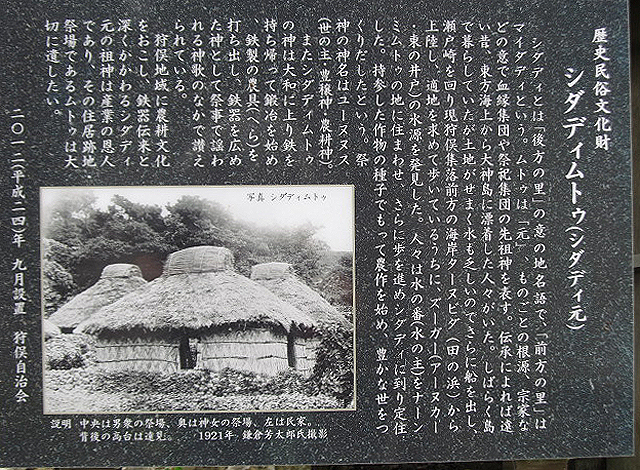 歴史民俗文化財
シダディムトゥ(シダディ元)
シダディとは「後方の里」の意の地名語で、「前方の里」は
マイダディという。ムトゥは「元」、ものごとの根源、宗家な
どの意で血縁集団や祭祀集団の先祖神を表す。伝承によれば遠
い昔、東方海上から大神島に漂着した人々がいた。しばらく島
で暮らしていたが土地がせまく水も乏しいのでさらに船を出し、
瀬戸崎を回り現狩俣集落前方の海岸ターヌピダ(田の浜)から
上陸し、適地を求めて歩いているうちに、ズーガー(アーヌカー
・東の井戸)の水源を発見した。人々は水の番(水の主)をナーン
ミムトゥの地に住まわせ、さらに歩を進めシダディに到り定住
した。持参した作物の種子でもって農作を始め、豊かな世をつ
くりだしたという。祭
神の神名はユーヌヌス
(世の主・豊穣神・農耕神)。
またシダディムトゥ
の神は大和に上り鉄を
持ち帰って鍛冶を始め
鉄製の農具(へら)を
打ち出し、鉄器を広め
た神として祭事で謡わ
れる神歌のなかで讃え
られている。
狩俣地域に農耕文化
をおこし、鉄器伝来と
深くかかわるシダディ
元の祖神は産業の恩人
であり、その住居跡地
祭場であるムトゥは大
切に遺したい。
二〇一二(平成二四)年 九月設置 狩俣自治会
写真 シダディムトゥ
説明 中央は男衆の祭場、奥は神女の祭場、左は民家。
背後の高台は遠見。 1921年 鎌倉芳太郎氏撮影